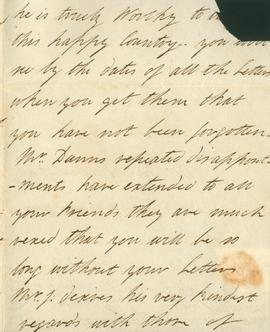 he is truly worthy to
this happy Country - you
see by the dates of all the Letters
when you get them that
you have not been forgotten -
Mr. repeated disappoint
-ments have extended to all
your friends they are much
vexed that you will be so
long without your Letters
Mr. J. desires his very kindest
regards with those of